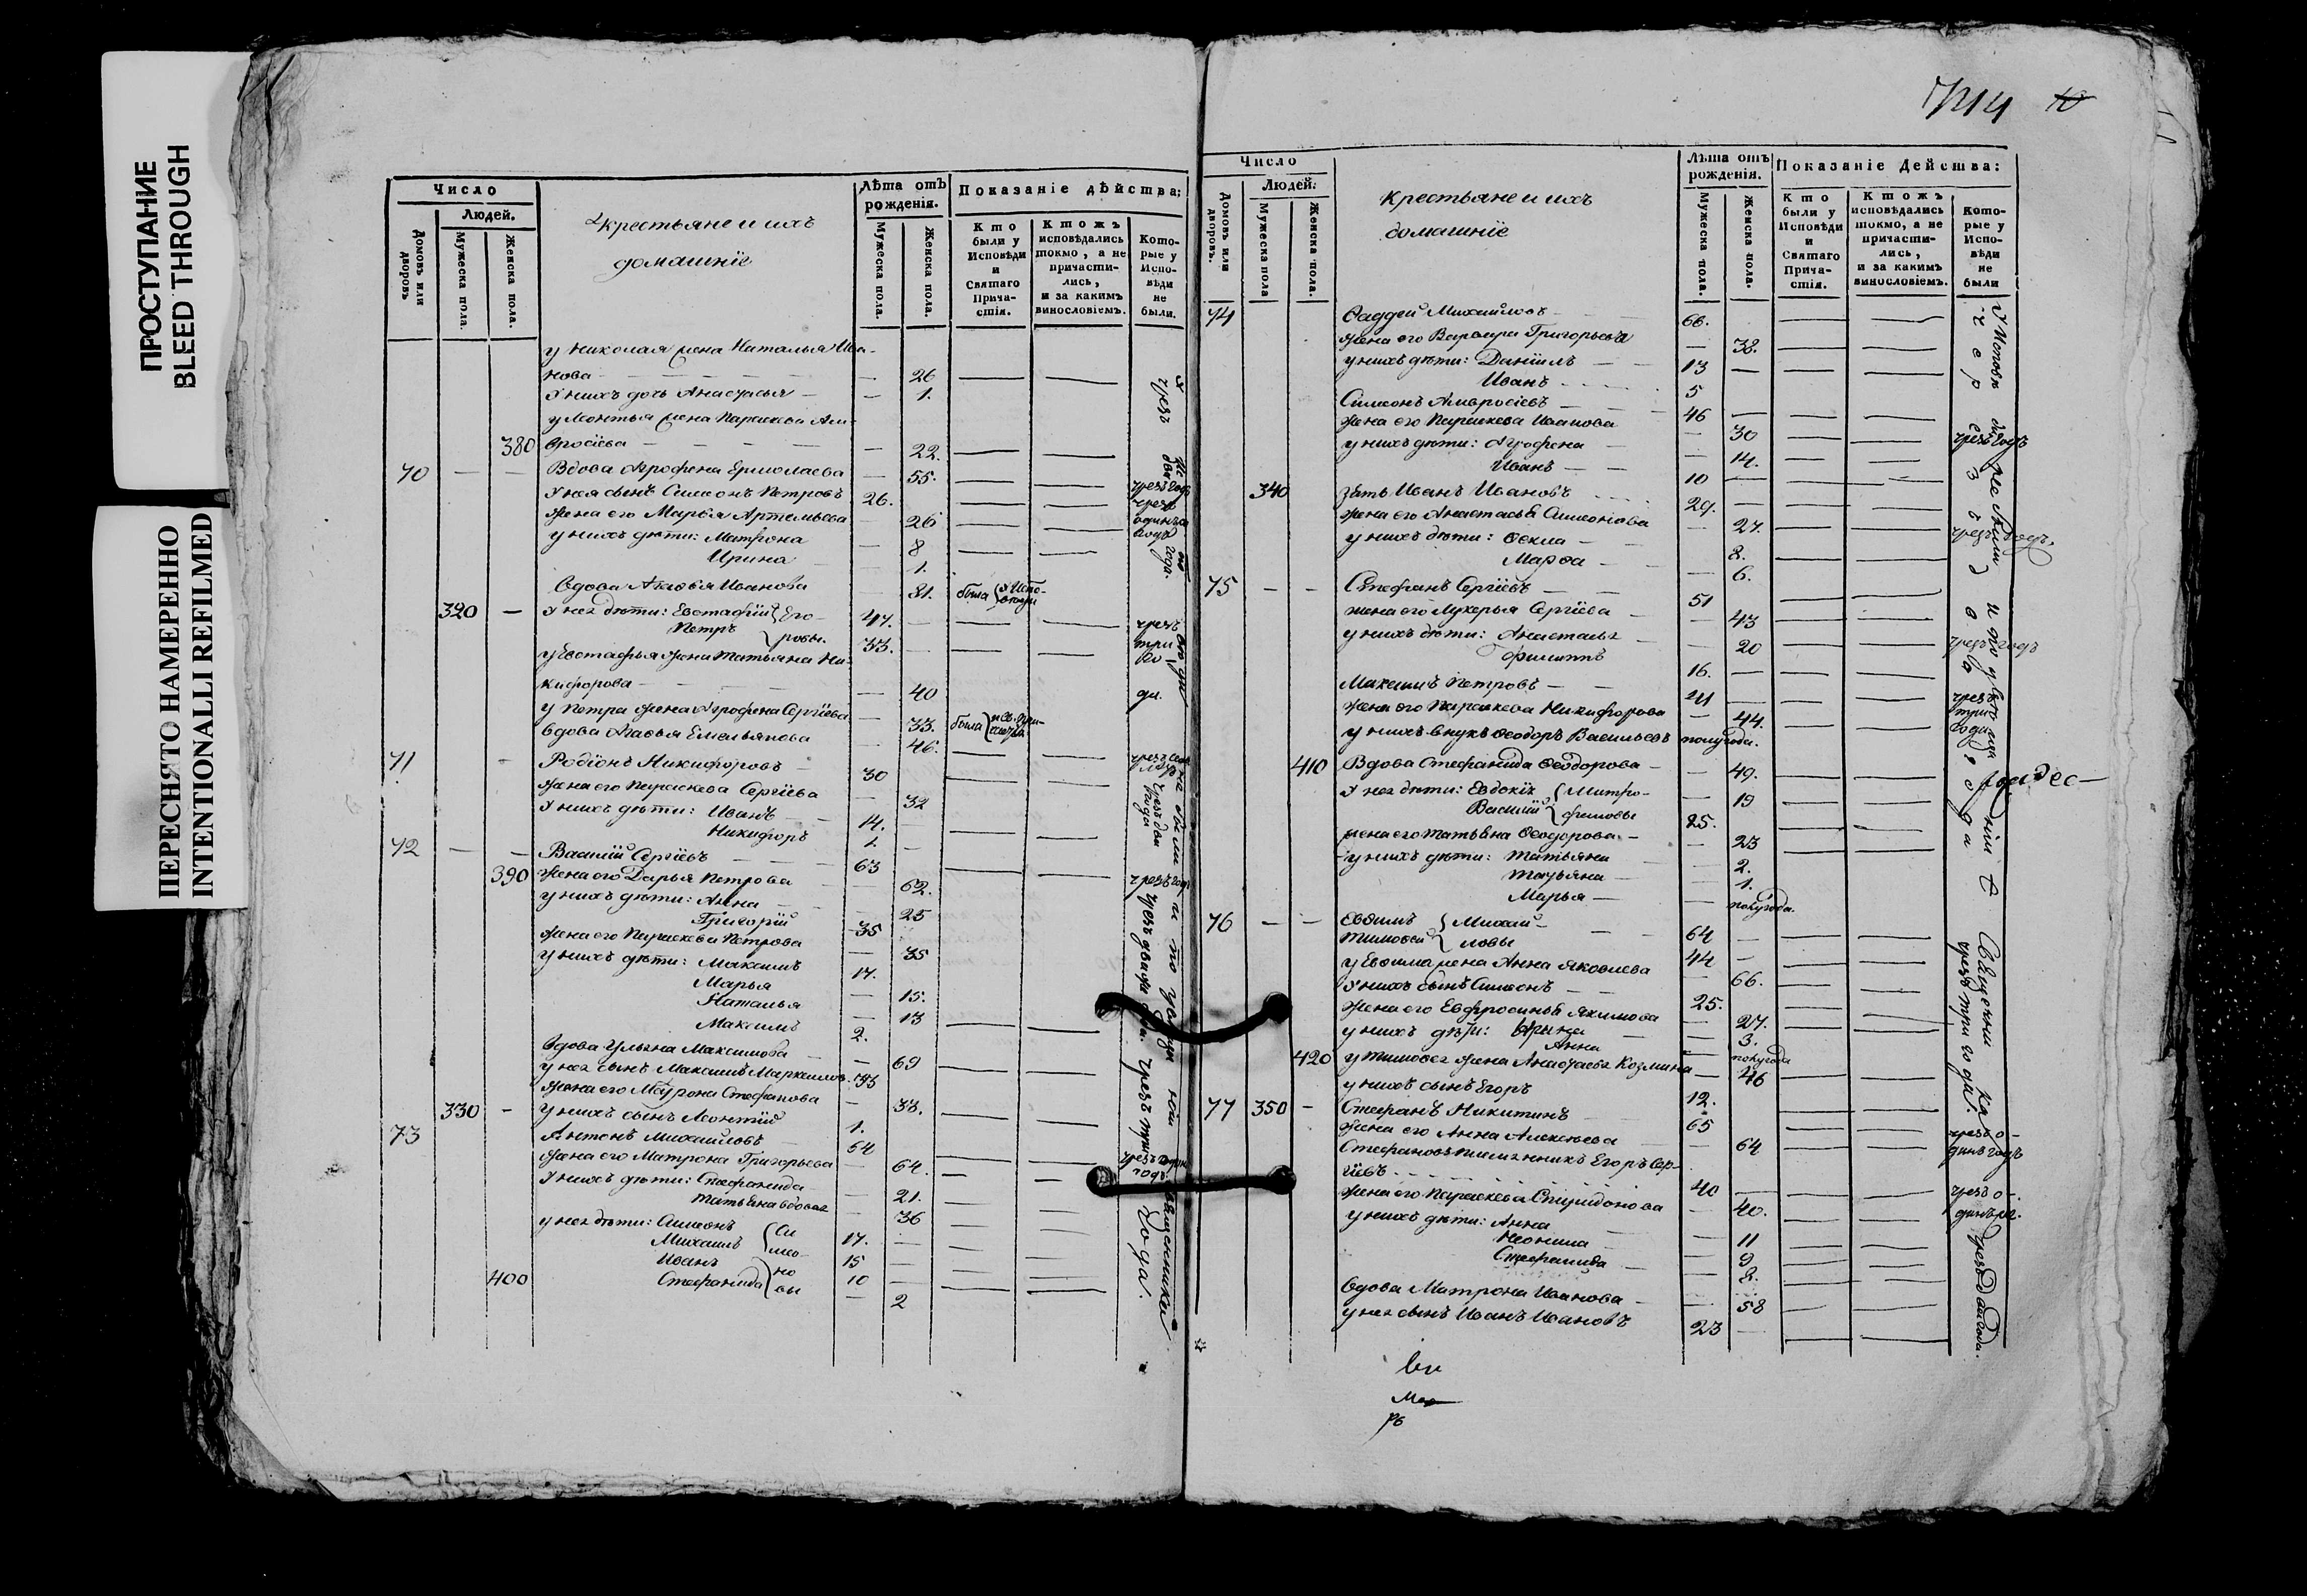 ПРОСТУПАНИЕ
BLEED THROUGH
ПЕРЕСНЯТО НАМЕРЕННО
INTENTIONALLI REFILMED
Число
Людей.
Домовъ или дворовъ
Мужеска пола.
Женска пола.
крестьяне и ихъ
домашніе
Лѣта отъ рожденія.
Мужеска пола.
Женска пола.
Показаніе дѣйства:
Кто были у Исповѣди и Святаго Прича-стія.
Ктожъ исповѣдались токмо, а не причасти-лись, и за какимъ винословіемъ.
Кото-рые у Испо-вѣди не были.
у Николая жена Наталья Ива-
нова — 26
у нихъ дочь Анастасья — 1.
у Леонтья жена Параскева Ам-
380 вросіева — 22.
70 — — Вдова Агрофена Ермолаева — 55. чрезъ годъ
у нея сынъ Симеонъ Петровъ 26.
жена его Марья Артемьева 26
у нихъ дѣти: Матрона — 8
Ирина — 1.
вдова Агафья Иванова — 81. была у Испо-вѣди
320 — у нея дѣти: Евстафій Его- 47.
Петръ ровы. 33. чрезъ три го
у Евстафья жена Татьяна Ни-
кифорова — 40 да.
у Петра жена Агрофена Сергіева — 33. была
вдова Агафья Емельянова 46.
71 Родіонъ Никифоровъ — 30
жена его Параскева Сергіева — 32
у нихъ дѣти: Иванъ — 14.
Никифоръ 1
72 — — Василій Сергіевъ — 63
390 жена его Дарья Петрова 62. чрезъ годъ
у нихъ дѣти: Анна — 25
Григорій 35
жена его Параскева Петрова — 35
у нихъ дѣти: Максимъ 17.
Марья — 15.
Наталья — 13
Максимъ 2.
вдова Ульяна Максимова — 69
у нея сынъ Максимъ Маркеловъ 33
жена его Матрона Стефанова — 33.
330 — у нихъ сынъ Леонтій 1.
73 Антонъ Михайловъ — 64
жена его Матрона Григорьева — 64.
у нихъ дѣти: Стефанида — 21.
Татьяна вдова — 36
у нея дѣти: Симеонъ Си 17.
Михаилъ мео- 15
Иванъ но 10
400 Стефанида вы — 2
10
Число
Людей:
Домовъ или дворовъ.
Мужеска пола
Женска пола.
крестьяне и ихъ
домашніе
Лѣта отъ рожденія.
Мужеска пола.
Женска пола.
Показаніе Дѣйства:
Кто были у Исповѣди и Святаго Прича-стія.
Ктожъ исповѣдались токмо, а не причасти-лись, и за какимъ винословіемъ.
Кото-рые у Испо-вѣди не были
74 Фаддей Михайловъ 66.
жена его Варвара Григорьева — 38.
у нихъ дѣти: Даніилъ — 13
Иванъ 5
Симеонъ Амвросіевъ — 46
жена его Параскева Иванова — 30 чрезъ годъ
у нихъ дѣти: Агрофена — 14.
Иванъ — 10
340 зять Иванъ Ивановъ 29.
жена его Анастасья Симеонова 27.
у нихъ дѣти: Фекла — 8.
Марфа — 6.
75 — — Стефанъ Сергіевъ — 51
жена его Лукерья Сергіева — 43
у нихъ дѣти: Анастасья — 20 чрезъ годъ
Филиппъ 16.
Максимъ Петровъ — 44
жена его Параскева Никифорова — 44. чрезъ три года
у нихъ внукъ Феодоръ Васильевъ полугода.
410 Вдова Стефанида Феодорова — 49.
у нея дѣти: Евдокія Митро- — 19
Василій фановы 25.
жена его Татьяна Феодорова — 23
у нихъ дѣти: Татьяна 2.
Татьяна — 1.
Марья — полугода.
76 — — Евфимъ Михай- 64
Тимофей ловы 44
у Евфима жена Анна Яковлева — 66.
у нихъ сынъ Симеонъ — 25.
жена его Евфросинья Якимова — 27.
у нихъ дѣти: Арина — 3.
Анна — полугода
420 у Тимофея жена Анастасья Козмина — 46
у нихъ сынъ Егоръ 12.
77 350 — Стефанъ Никитинъ — 65
жена его Анна Алексѣева — 64 чрезъ о-
Стефановъ племянникъ Егоръ Сер- динъ годъ
гіевъ 40
жена его Параскева Спиридонова — 40. чрезъ о-
у нихъ дѣти: Анна — 11
Неонила — 9
Стефанида — 2.
вдова Матрона Иванова — 58
у нея сынъ Иванъ Ивановъ 23